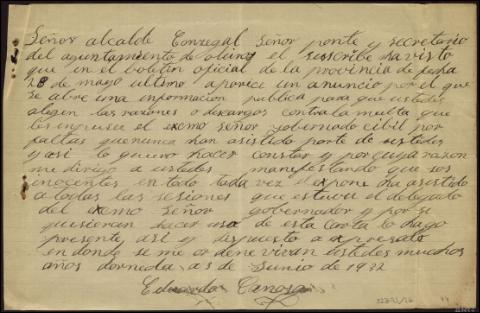 Señor alcalde Conzegal Señor ponte y secretario
del ayuntamiento de oleiros el susscribe ha visto
que en el boletin oficial de la provincia de fecha
28 de mayo ultimo aparice un anuncio por el que
se abre una informacion publica para que ustedes
alegen las razones o descargos contra la multa que
les inpuso el exmo Señor gobernado cibil por
faltas que nunca han asistido por te de ustedes
y asi lo quiero hacer constar y por cuya razon
me dirijo a ustedes manifestando que sos
inocentes en todo toda vez el expone ha asistido
a todas las sesiones que estuvo el delegado
del exmo Señor gobernador y por si
quisieran hacer uso de esta carta lo hago
presente asi y dispuesto a expresalo
en donde se me ordene vivan ustedes muchos
años dorneda a 3 de Junio de 1922
Eduardo Canosa